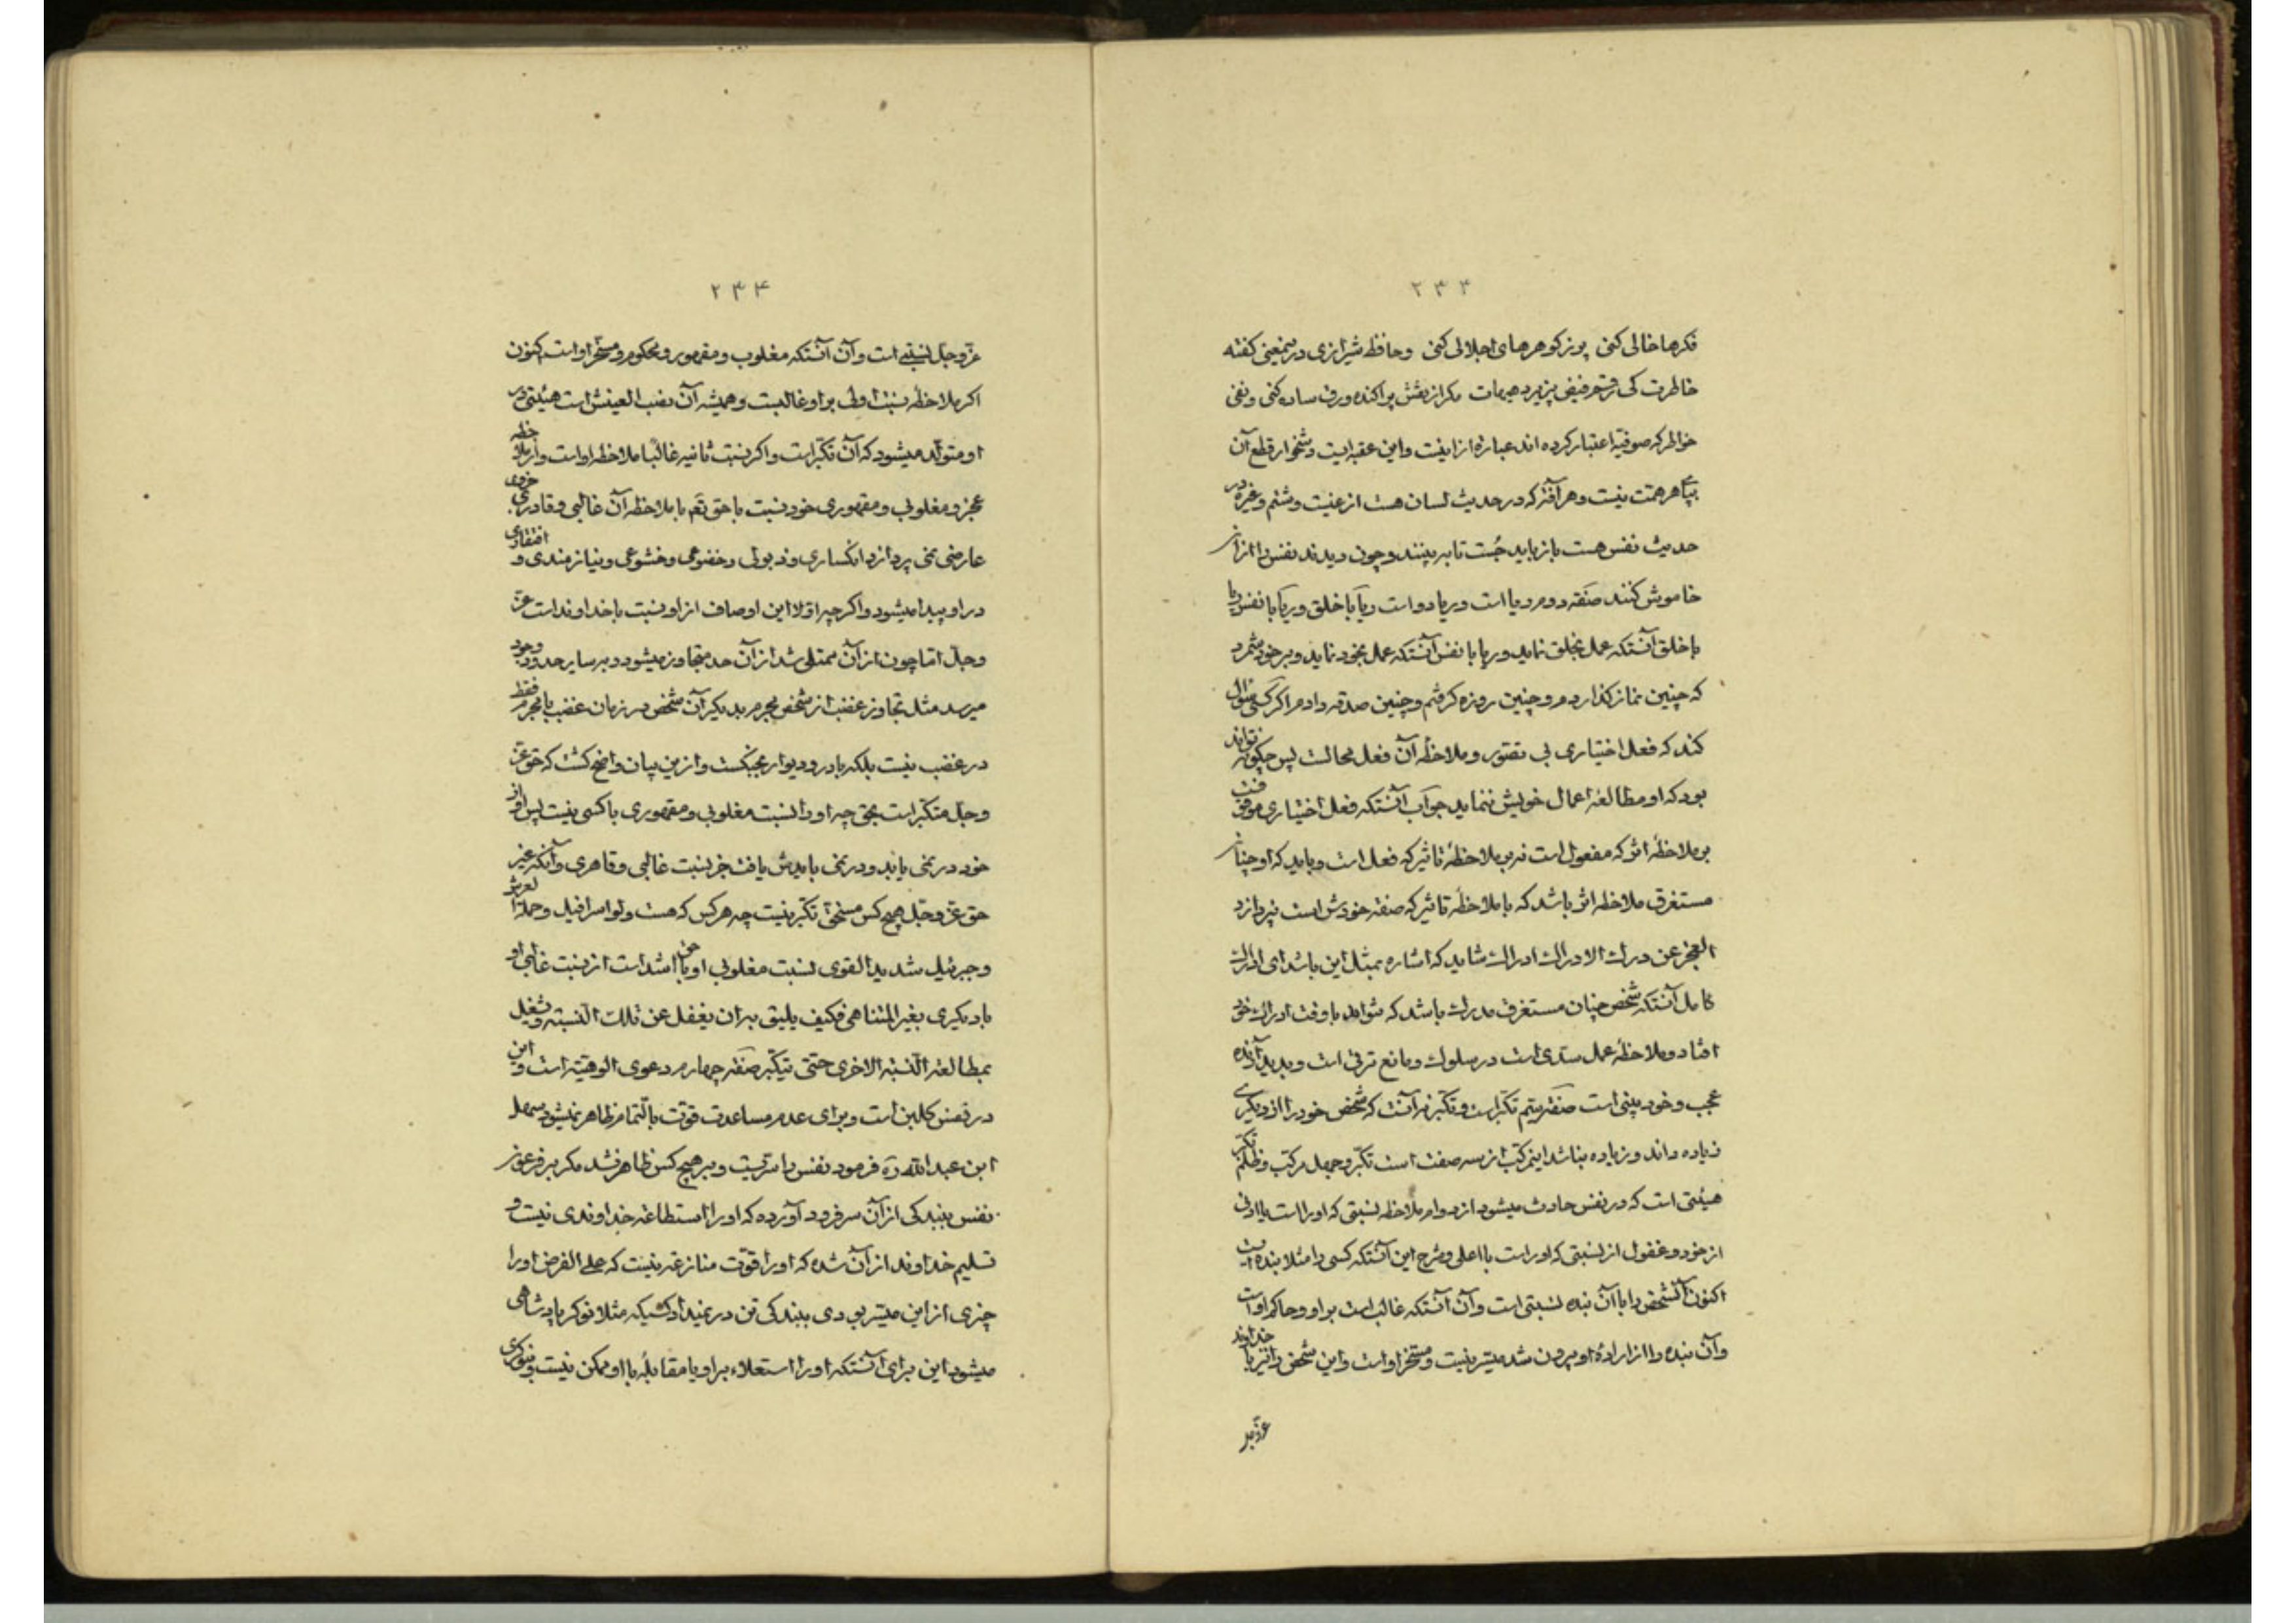 ۲۳۳
فکرها خالی کنی پر ز کوهرهای اجلالی کنی وحافظ شیرازی درینمعنی کفته
خاطرت کی رقم فیض پزیرد هیهات مکر از نقش پراکنده ورق ساده کنی ونفی
خواطر که صوفیه اعتبار کرده اند عبارة از اینست واین عقبه ایست دشخوار قطع آن
بپای هر همّت نیست وهر آفته که در حدیث لسان هست از غیبت وشتم وغیره در
حدیث نفس هست باز باید جُست تا به بینند وچون دیدند نفس را از آن
خاموش کنند صفة دوم ریا است وریا دو است ریآء با خلق وریآء با نفس ریا
با خلق آنستکه عمل بخلق نماید وریا با نفس آنستکه عمل بخود نماید وبر خود شمرد
که چنین نماز کذاردم وچنین روزه کرفتم وچنین صدقه دادم اکر کسی سؤال
کند که فعل اختیاری بی تصوّر وملاحظهٔ آن فعل محالست پس چکونه تواند
بود که او مطالعهٔ اعمال خویش ننماید جواب آنستکه فعل اختیاری موقوفست
بر ملاحظهٔ اثر که مفعول است نه بر ملاحظهٔ تاثیر که فعل است وباید که او چنان
مستغرق ملاحظه اثر باشد که با ملاحظهٔ تاثیر که صفة خودش است نپردازد
العجز عن درك الادراك ادراك شاید که اشاره بمثل این باشد ای ادراك
کامل آنستکه شخص چنان مستغرق مدرك باشد که نتواند با وقت ادراك خود
افتاد وملاحظهٔ عمل سدّی است در سلوك ومانع ترقی است وپدید آرنده
عجب وخود بینی است صفة سیّم تکبّر است وتکبّر نه آنست که شخص خود را از دیکری
زیاده داند وزیاده نباشد این مرکّب از سه صفت است تکبّر وجهل مرکب وظلم تکبّر
هیئتی است که در نفس حادث میشود از دوام ملاحظه نسبتی که او را است با ادنی
از خود وغفول از نسبتی که او راست با اعلی وشرح این آنستکه کسی را مثلا بنده است
اکنون آنشخص را با آن بنده نسبتی است وآن آنستکه غالب است بر او وحاکم او است
وآن بنده را از ارادهٔ او بیرون شد میسّر نیست ومسخّر او است واین شخص را نیز با خداوند
عزّ وجل
۲۳۴
عزّ وجلّ نسبتی است وآن آنستکه مغلوب ومقهور ومحکوم ومسخّر او است اکنون
اکر ملاحظهٔ نسبت اولی بر او غالبست وهمیشه آن نصب العینش است هیئتی در
او متولّد میشود که آن تکبّر است واکر نسبت ثانیه غالبًا ملاحظه او است واز ملاحظه
عجز ومغلوبی ومقهوری خود نسبت با حق تعٓم با ملاحظه آن غالبی وقادری جزوی
عارضی نمی پردازد انکساری وذبولی وخضوعی وخشوعی ونیازمندی وافتقادی
در او پیدا میشود واکر چه اوّلا این اوصاف از او نسبت با خداوند است عزّ
وجلّ امّا چون از آن ممتلی شد از آن حد متجاوز میشود وبر سایر حدود وجود
میرسد مثل تجاوز غضب از شخص مجرم بدیکر آن شخص در زمان غضب با مجرم فقط
در غضب نیست بلکه با در ودیوار بجنکست وازین بیان واضح کشت که حق عزّ
وجلّ متکبّر است بحق چه او را نسبت مغلوبی ومقهوری با کسی نیست پس او از
خود در نمی یابد ودر نمی بایدش یافت جز نسبت غالبی وقاهری وآنکه غیر
حق عزّ وجلّ هیچ کس مستحق تکبّر نیست چه هر کس که هست ولو اسرافیل وحملة العرش
وجبرئیل شدید القوی نسبت مغلوبی او با حق اشد است از نسبت غالبی او
با دیکری بغیر المتناهی فکیف یلیق به ان یغفل عن تلك النسبة ویشغل
بمطالعة النسبة الاخری حتّی یتکبّر صفة چهارم دعوی الوهیّة است واین
در نفس کامن است وبرای عدم مساعدت قوّت بالتمام ظاهر نمیشود سهل
ابن عبد الله رَه فرمود نفس را سرّیست وبر هیچ کس ظاهر نشد مکر بر فرعون
نفس ببندکی از آن سر فرود آورده که او را استطاعة خداوندی نیست و
تسلیم خداوند از آن شده که او را قوّت منازعه نیست که علی الفرض او را
چیزی از این میسّر بودی ببندکی تن در نمیداد کسیکه مثلا نوکر پادشاهی
میشود این برای آنستکه او را استعلاء بر او یا مقابله با او ممکن نیست وبنوکری